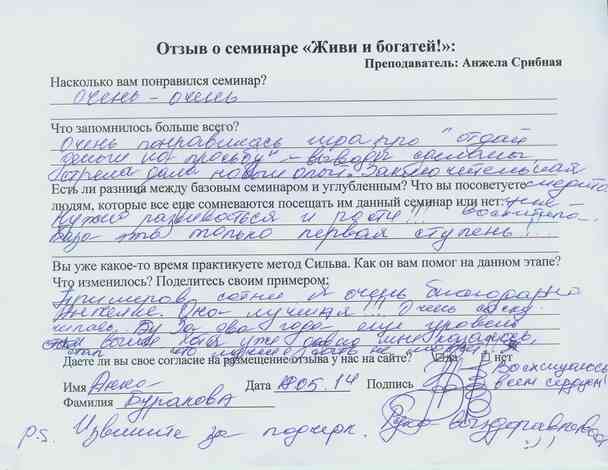 Отзыв о семинаре «Живи и богатей!»:
Преподаватель: Анжела Срибная
Насколько вам понравился семинар?
Очень - очень
Что запомнилось больше всего?
Очень понравилась игра про "отдай
деньги по просьбу" – выводы сделаны,
новый опыт. Заключительная
Есть ли разница между базовым семинаром и углубленным? Что вы посоветуете
людям, которые все еще сомневаются посещать им данный семинар или нет:
Нужно развиваться и расти!!!
это только первая ступень!
Вы уже какое-то время практикуете метод Сильва. Как он вам помог на данном этапе?
Что изменилось? Поделитесь своим примером:
Примеров сотни. Я очень благодарна
Анжелке. Она лучшая!!! Очень
за два года еще уровень
выше. Хотя уже давно мне казалось,
что лучше быть не
Даете ли вы свое согласие на размещение отзыва у нас на сайте? да нет
Восхищаюсь
Имя Анна Дата 05.14 Подпись всем сердцем!
Фамилия Буракова
p.s. Извините за подчерк. Рука выздоравливает
:))